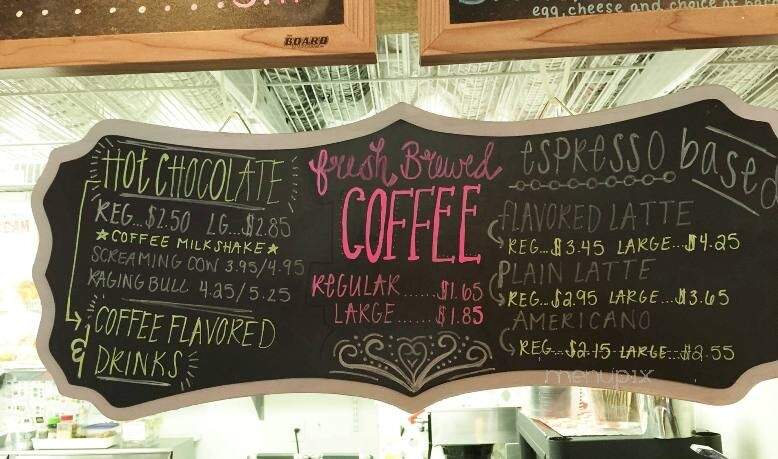 THE
BOARD
egg, cheese and choice of
HOT CHOCOLATE
REG...$2.50 LG...$2.85
★COFFEE MILKSHAKE★
SCREAMING COW 3.95/4.95
RAGING BULL 4.25/5.25
& COFFEE FLAVORED
DRINKS
fresh Brewed
COFFEE
REGULAR......$1.65
LARGE......$1.85
ESPRESSO based
FLAVORED LATTE
REG...$3.45 LARGE...$4.25
PLAIN LATTE
REG...$2.95 LARGE...$3.65
AMERICANO
REG...$2.15 LARGE...$2.55
menupix